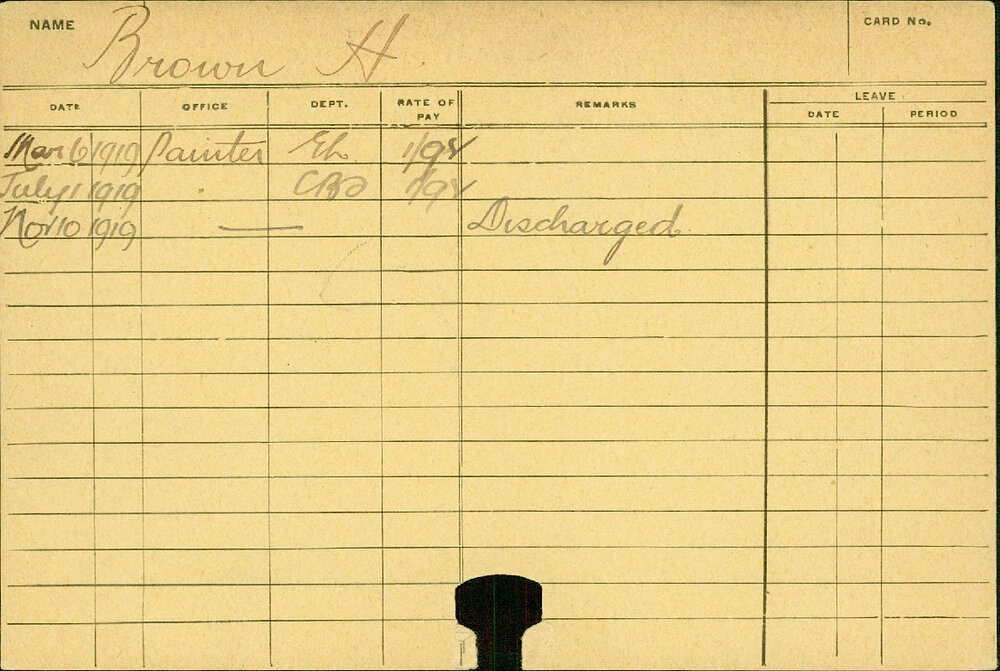 NAME Brown H. CARD No.
DATE OFFICE DEPT. RATE OF PAY REMARKS LEAVE
DATE PERIOD
Mar 6 1919 Painter
July 1 1919 "
Nov 10 1919 — Discharged